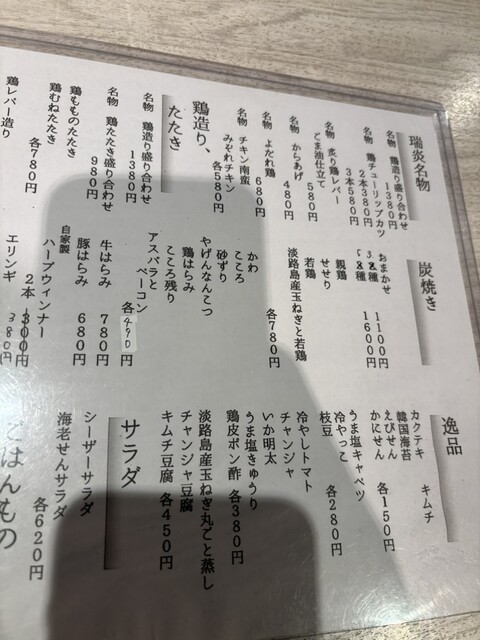 瑞炎名物
名物 鶏造り盛り合わせ
1380円
名物 鶏チューリップカツ
2本380円
3本580円
名物 炙り鶏レバー
ごま油仕立て
580円
名物 からあげ
480円
名物 よだれ鶏
680円
名物 チキン南蛮
みぞれチキン
各580円
鶏造り、
たたき
名物 鶏造り盛り合わせ
1380円
名物 鶏たたき盛り合わせ
980円
鶏もものたたき
鶏むねたたき
各780円
鶏レバー造り
炭焼き
おまかせ
1100円
1600円
親鶏
せせり
若鶏
淡路島産玉ねぎと若鶏
各780円
かわ
こころ
砂ずり
やげんなんこつ
鶏はらみ
こころ残り
アスパラと
ベーコン
各490円
牛はらみ 780円
豚はらみ 680円
自家製
ハーブウィンナー
2本 300円
エリンギ 380円
逸品
カクテキ キムチ
韓国海苔
えびせん
かにせん 各150円
うま塩キャベツ
冷やっこ
枝豆 各280円
冷やしトマト
チャンジャ
いか明太
うま塩きゅうり
鶏皮ポン酢 各380円
淡路島産玉ねぎ丸ごと蒸し
チャンジャ豆腐
キムチ豆腐 各450円
サラダ
シーザーサラダ
海老せんサラダ
各620円
ごはんもの